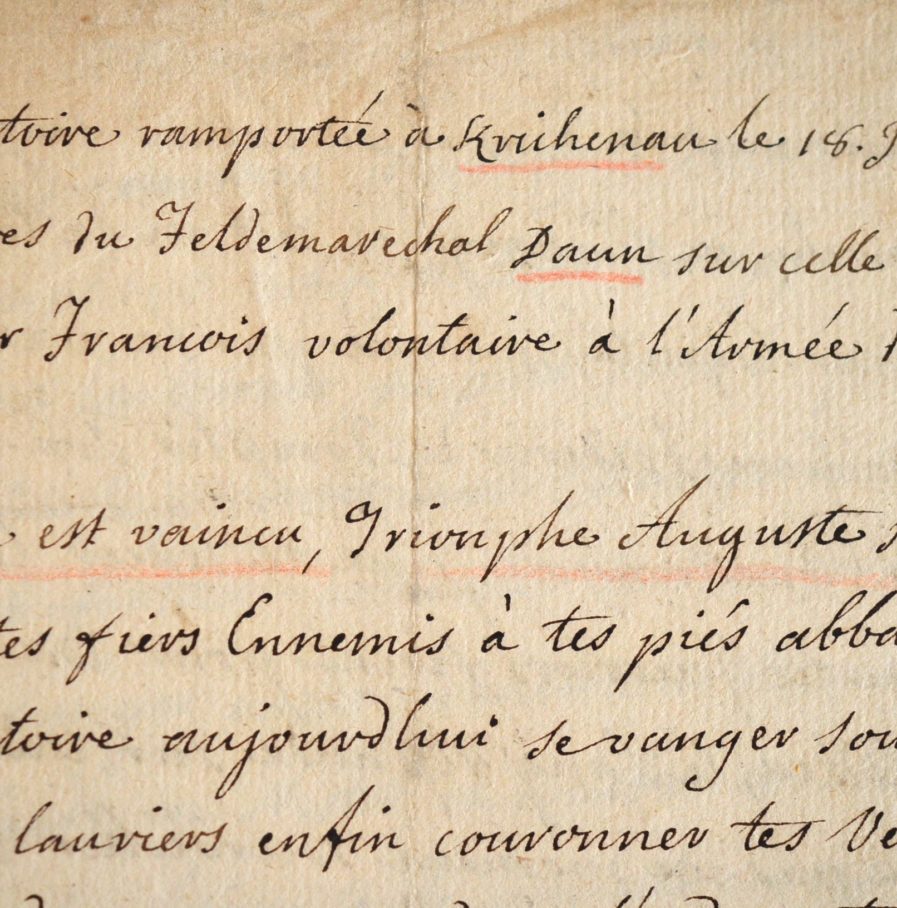 toire ramportée à Krichenau le 18. J
es du Feldemarechal Daun sur celle
r Francois volontaire à l'Armée
est vaincu, Trionphe Auguste
tes fiers Ennemis à tes piés abba
toire aujourdhui se vanger sou
lauriers enfin couronner tes Ve